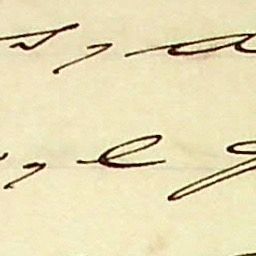 s, a
, e g